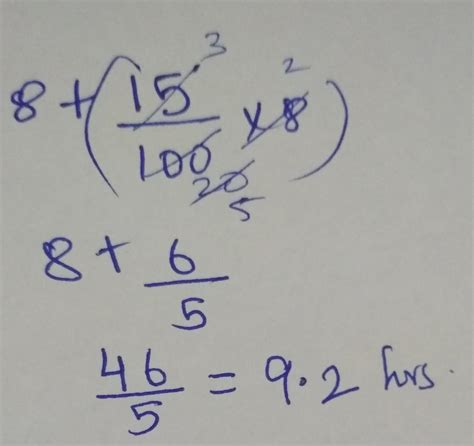 8 + (15/100 × 8) 3 2 20 5
8 + 6/5
46/5 = 9.2 hrs.